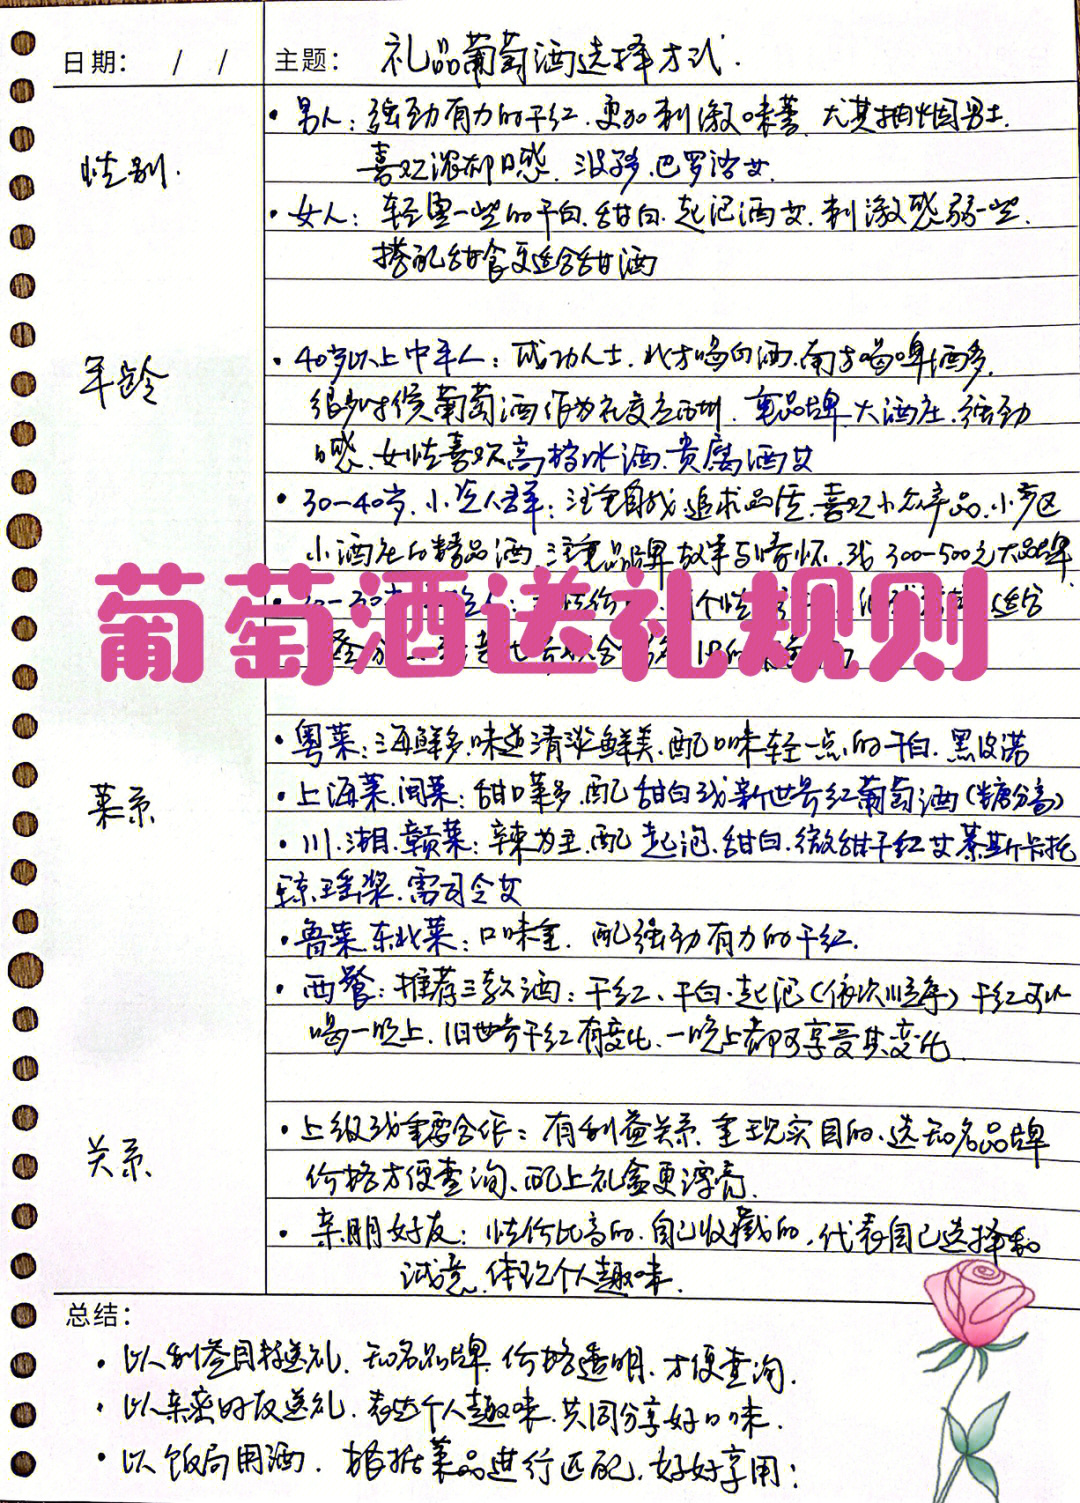 日期： / / 主题： 礼品葡萄酒选择方式.
性别.
· 男人：强劲有力的干红.更加刺激味蕾.尤其抽烟男士.
喜欢浓郁口感.波多.巴罗洛等.
· 女人：轻盈一些的干白.甜白.起泡酒等.刺激感弱一些.
搭配甜食更适合甜酒
年龄
· 40岁以上中年人：成功人士.北方喝白酒.南方喝啤酒多.
很多时候葡萄酒作为社交应酬.重品牌.大酒庄.强劲
口感.女性喜欢高档冰酒.贵腐酒等
· 30—40岁.小资人群：注重自我 追求品质.喜欢小众产品.小产区
小酒庄的精品酒.注重品牌故事与情怀.或300-500元大品牌
葡萄酒送礼规则
菜系
· 粤菜：海鲜多.味道清淡鲜美.配口味轻一点的干白.黑皮诺
· 上海菜.闽菜：甜口菜多.配甜白或新世界红葡萄酒(糖分高)
· 川.湘.赣菜：辣为主.配起泡.甜白.微甜干红等 慕斯卡托
琼瑶浆.雷司令等
· 鲁菜.东北菜：口味重.配强劲有力的干红.
· 西餐：推荐三款酒：干红、干白.起泡(依次顺序)干红可以
喝一晚上.旧世界干红有变化.一晚上都可享受其变化.
关系
· 上级或重要合作：有利益关系.重现实目的.选知名品牌
价格方便查询.配上礼盒更漂亮.
· 亲朋好友：性价比高的.自己收藏的.代表自己选择和
诚意.体现个人趣味.
总结：
· 以利益目标送礼.知名品牌 价格透明.方便查询.
· 以亲密好友送礼.表达个人趣味.共同分享好口味.
· 以饭局用酒.根据菜品进行匹配.好好享用：